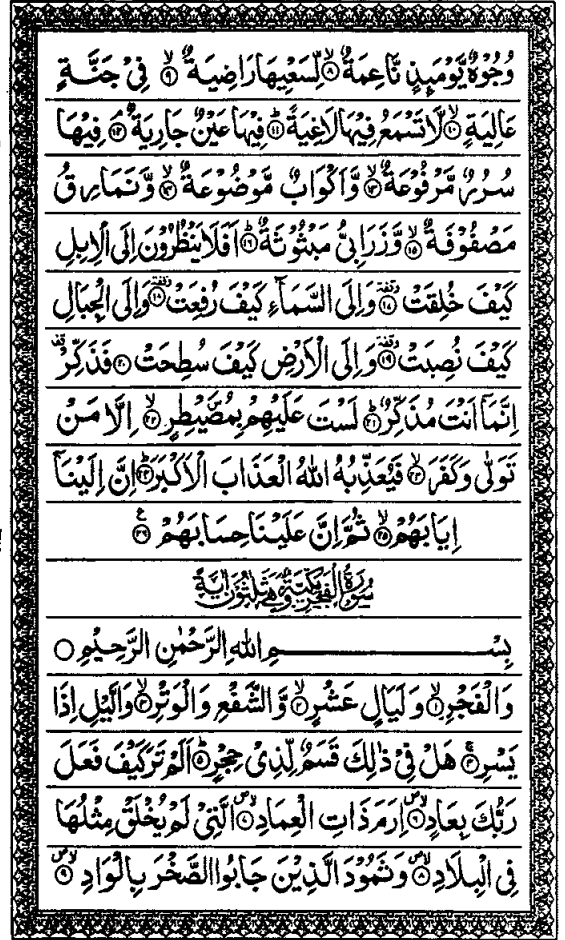 وُجُوْهٌ يَّوْمَىِٕذٍ نَّاعِمَةٌ ۙ‏﴿۸﴾ لِّسَعْيِهَا رَاضِيَةٌ ۙ‏﴿۹﴾ فِىْ جَنَّةٍ
عَالِيَةٍ ۙ‏﴿۱۰﴾ لَّا تَسْمَعُ فِيْهَا لَاغِيَةً ؕ‏﴿۱۱﴾ فِيْهَا عَيْنٌ جَارِيَةٌ ۘ‏﴿۱۲﴾ فِيْهَا
سُرُرٌ مَّرْفُوْعَةٌ ۙ‏﴿۱۳﴾ وَّاَكْوَابٌ مَّوْضُوْعَةٌ ۙ‏﴿۱۴﴾ وَّنَمَارِقُ
مَصْفُوْفَةٌ ۙ‏﴿۱۵﴾ وَّزَرَابِىُّ مَبْثُوْثَةٌ ؕ‏﴿۱۶﴾ اَفَلَا يَنْظُرُوْنَ اِلَى الْاِبِلِ
كَيْفَ خُلِقَتْ وقفة‏﴿۱۷﴾ وَاِلَى السَّمَآءِ كَيْفَ رُفِعَتْ وقفة‏﴿۱۸﴾ وَاِلَى الْجِبَالِ
كَيْفَ نُصِبَتْ وقفة‏﴿۱۹﴾ وَاِلَى الْاَرْضِ كَيْفَ سُطِحَتْ وقفة‏﴿۲۰﴾ فَذَكِّرْ قف
اِنَّمَاۤ اَنْتَ مُذَكِّرٌ ؕ‏﴿۲۱﴾ لَسْتَ عَلَيْهِمْ بِمُصَۜيْطِرٍ ۙ‏﴿۲۲﴾ اِلَّا مَنْ
تَوَلّٰى وَكَفَرَ ۙ‏﴿۲۳﴾ فَيُعَذِّبُهُ اللّٰهُ الْعَذَابَ الْاَكْبَرَ ؕ‏﴿۲۴﴾ اِنَّ اِلَيْنَاۤ
اِيَابَهُمْ ۙ‏﴿۲۵﴾ ثُمَّ اِنَّ عَلَيْنَا حِسَابَهُمْ ع‏﴿۲۶﴾
سُوْرَةُ الْفَجْرِ مَكِّيَّةٌ وَّهِىَ ثَلٰثُوْنَ اٰيَةً
بِسْمِ اللّٰهِ الرَّحْمٰنِ الرَّحِيْمِ ○
وَالْفَجْرِ ۙ‏﴿۱﴾ وَلَيَالٍ عَشْرٍ ۙ‏﴿۲﴾ وَّالشَّفْعِ وَالْوَتْرِ ۙ‏﴿۳﴾ وَالَّيْلِ اِذَا
يَسْرِ ۚ‏﴿۴﴾ هَلْ فِىْ ذٰلِكَ قَسَمٌ لِّذِىْ حِجْرٍ ؕ‏﴿۵﴾ اَلَمْ تَرَ كَيْفَ فَعَلَ
رَبُّكَ بِعَادٍ ۙص‏﴿۶﴾ اِرَمَ ذَاتِ الْعِمَادِ ۙص‏﴿۷﴾ الَّتِىْ لَمْ يُخْلَقْ مِثْلُهَا
فِى الْبِلَادِ ۙص‏﴿۸﴾ وَثَمُوْدَ الَّذِيْنَ جَابُوا الصَّخْرَ بِالْوَادِ ۙص‏﴿۹﴾